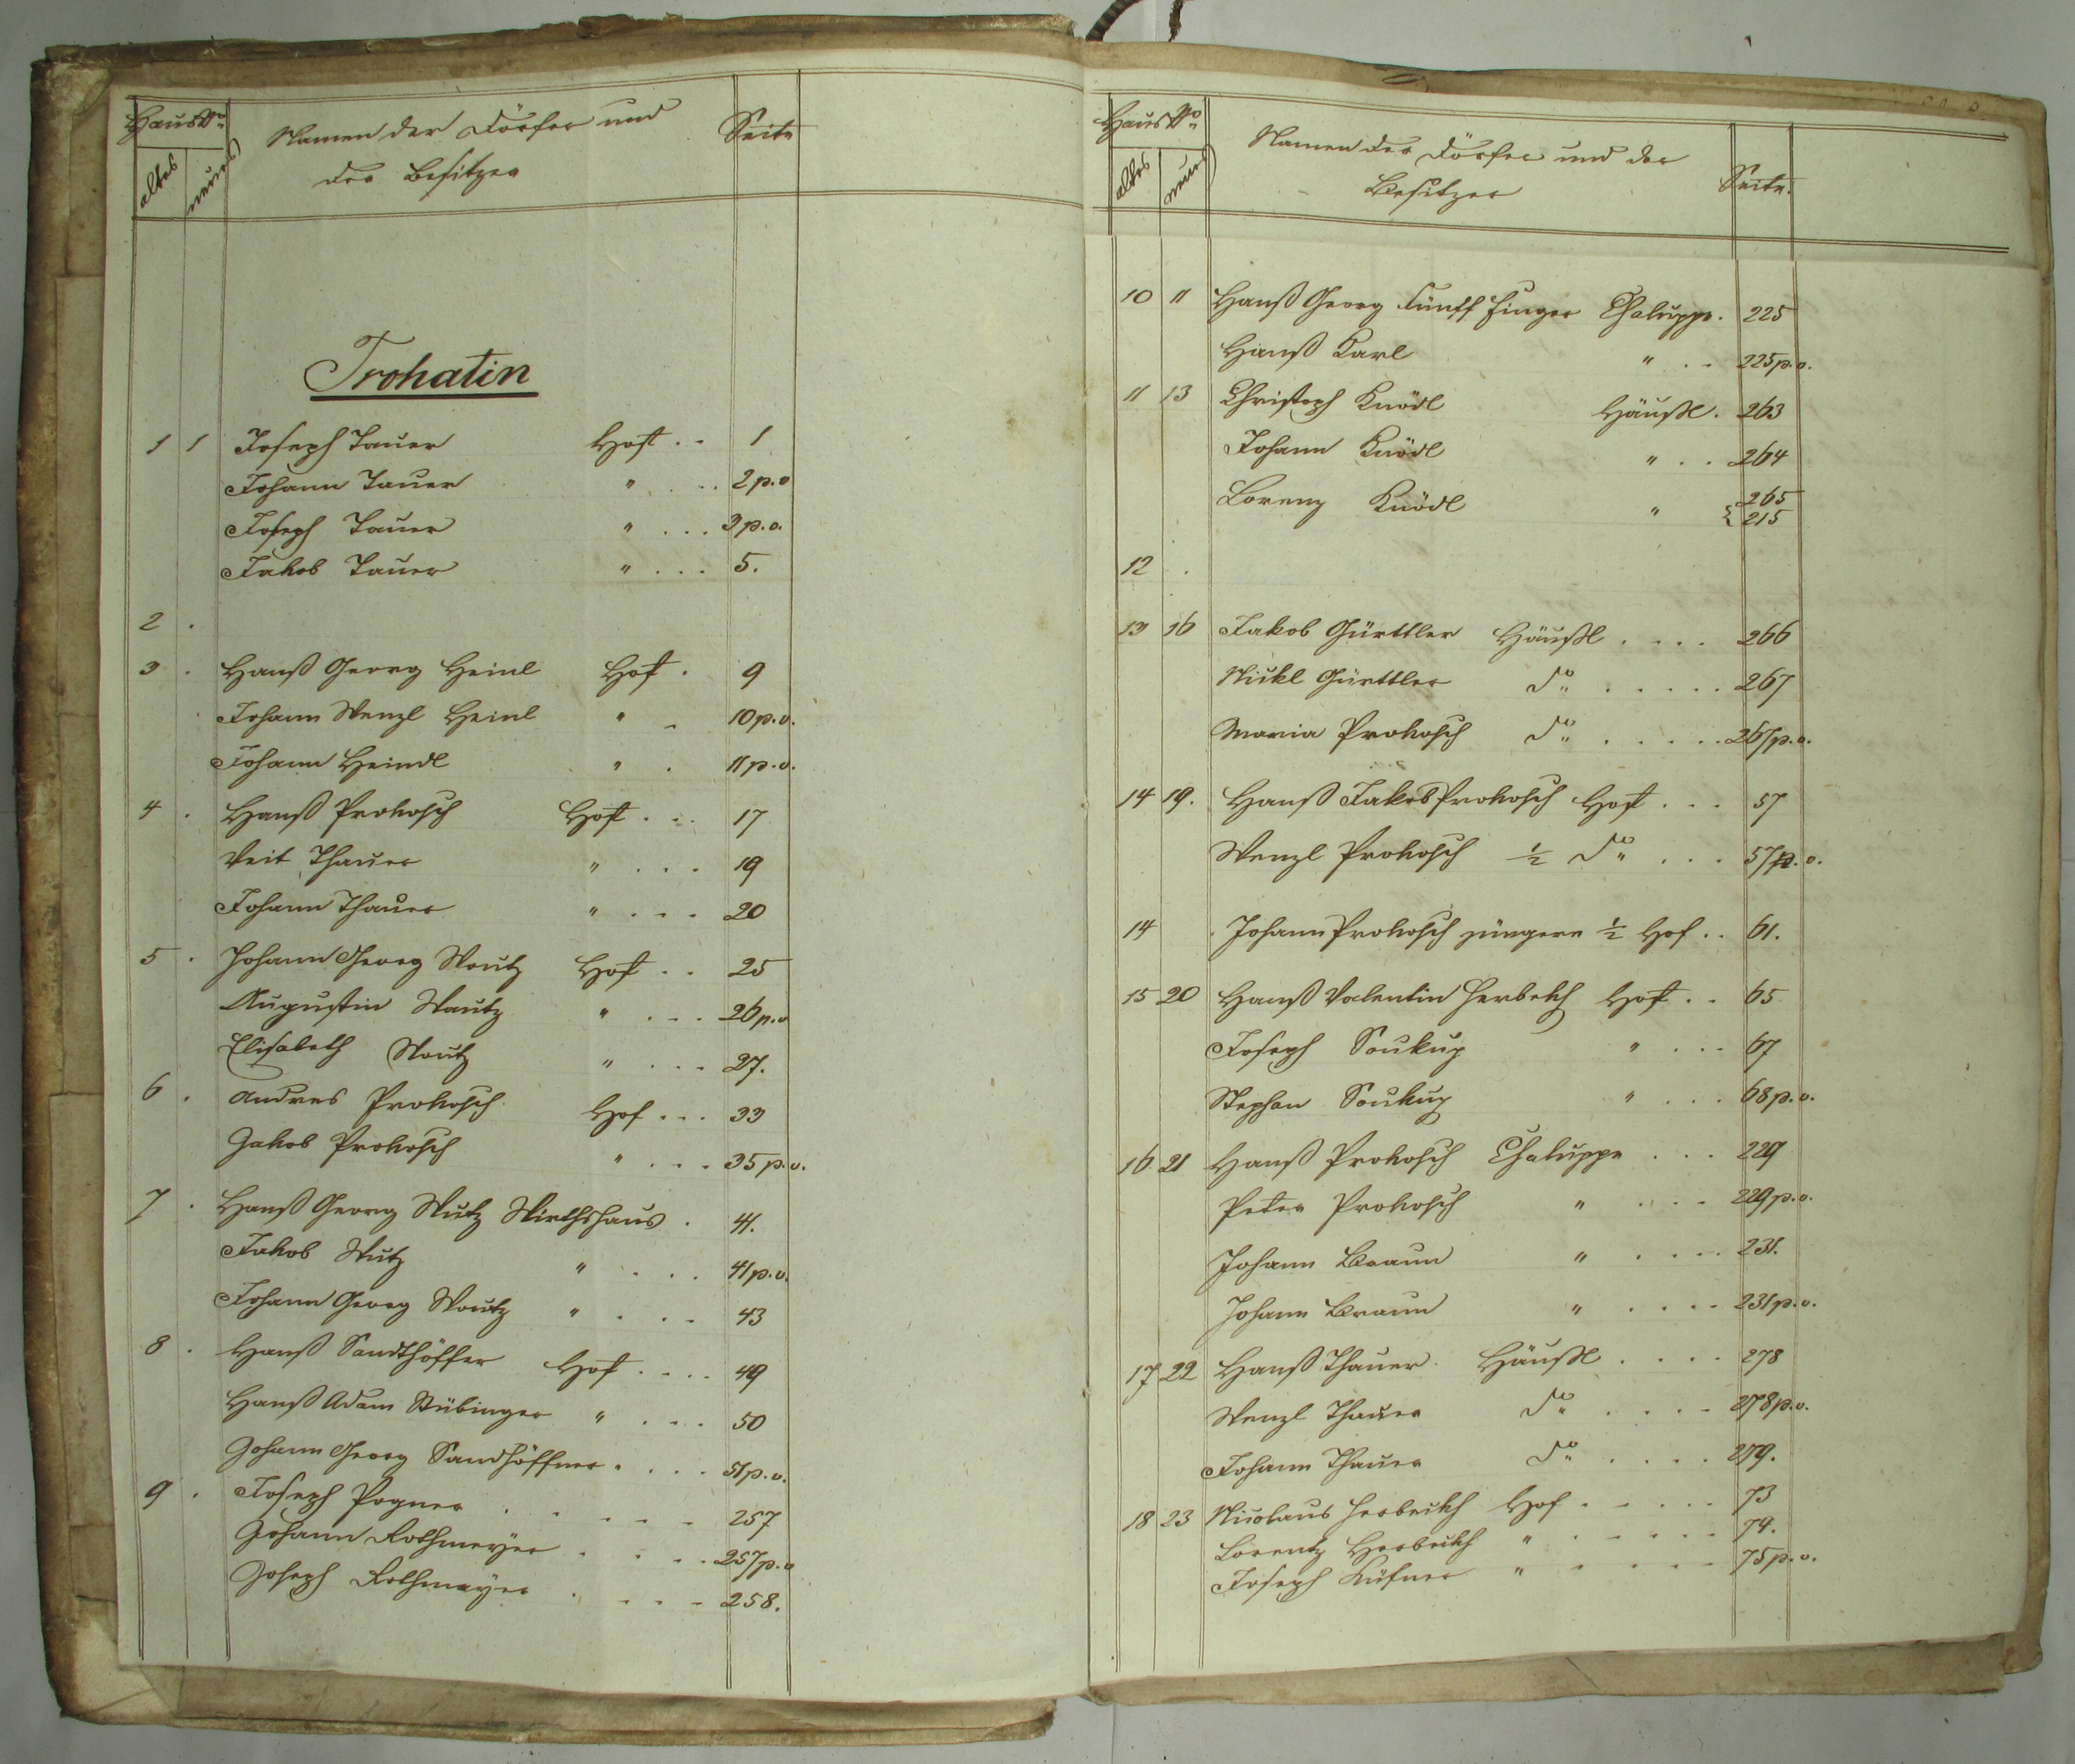 Haus No
altes neues
Namen der Dörfer und
der Besitzer
Seite
Trohatin
1 1 Joseph Tauer Hof . . 1
Johann Tauer " . . . 2 p. v
Joseph Tauer " . . . 3 p. v.
Jakob Tauer " . . . 5.
2 .
3 . Hanß Georg Heinl Hof . 9
Johann Wenzl Heinl " . 10 p. v.
Johann Heindl " . 11 p. v.
4 . Hanß Prokosch Hof . . . 17
Veit Thauer " . . . 19
Johann Thauer " . . . 20
5 . Johann Georg Woutz Hof . . 25
Augustin Wautz " . . . 26 p. v
Elisabeth Woutz " . . . 27.
6 . Andres Prokosch Hof . . . 33
Jakob Prokosch " . . . 35 p. v.
7 . Hanß Georg Wutz Wirthshaus . 41.
Jakob Wutz " . . . 41 p. v.
Johann Georg Woutz " . . . 43
8 . Hanß Sandthöffer Hof . . . . 49
Hanß Adam Stübinger " . . . 50
Johann Georg Sandhöffner . . . . 51 p. v.
9 . Joseph Pogner . . . . . 257
Johann Rothmeyer . . . . 257 p. v
Joseph Rothmayer . . . . 258.
Haus No
altes neues
Namen der Dörfer und der
Besitzer
Seite.
10 11 Hanß Georg Fünff Finger Chaluppe . 225
Hanß Karl " . . 225 p. v.
11 13 Christoph Knödl Häußl . 263
Johann Knödl " . . 264
Lorenz Knödl " { 265
215
12 .
13 16 Jakob Gürttler Häußl . . . . 266
Nickl Gürttler do . . . . . 267
Maria Prokosch do . . . . . 267 p. v.
14 19. Hanß Jakob Prokosch Hof . . . 57
Wenzl Prokosch ½ do . . . 57 p. v.
14 . Johann Prokosch jüngere ½ Hof . . 61.
15 20 Hanß Valentin Herbekh Hof . . 65
Joseph Soukup " . . . 67
Stephan Soukup " . . . 68 p. v.
16 21 Hanß Prokosch Chaluppe . . . 229
Peter Prokosch " . . . 229 p. v.
Johann Braun " . . . . 231.
Johann Braun " . . . . 231 p. v.
17 22 Hanß Thauer . Häußl . . . . 278
Wenzl Thauer do . . . . 278 p. v.
Johann Thauer do . . . . 279.
18 23 Nicolaus Herbeckh Hof . . . . . 73
Lorentz Herbeckh " . . . . . 74.
Joseph Küfner " . . . . . 75 p. v.